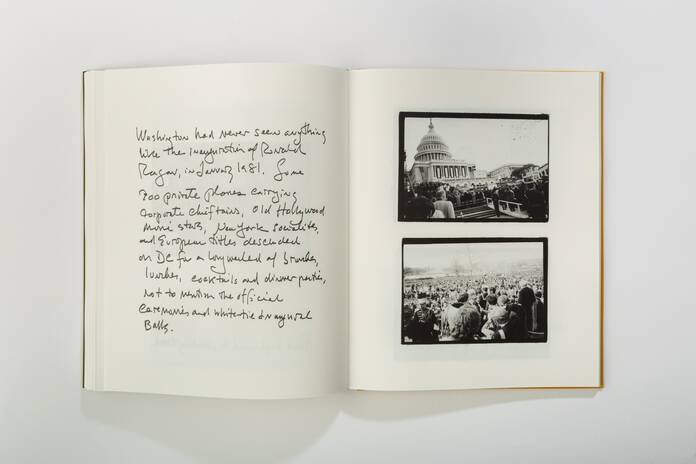 Washington had never seen anything
like the inauguration of Ronald
Reagan, in January 1981. Some
700 private planes carrying
corporate chieftains, old Hollywood
movie stars, New York socialites,
and European titles descended
on DC for a long weekend of brunches,
lunches, cocktails and dinner parties,
not to mention the official
ceremonies and white-tie inaugural
Balls.